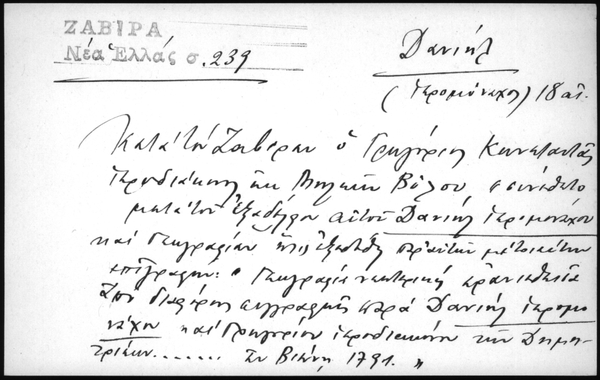 ΖΑΒΙΡΑ
Νέα Ἑλλάς σ. 239
Δανιήλ
(ἱερομόναχος) 18 αἰ.
Κατά τόν Ζαβίραν ὁ Γρηγόριος Κωνσταντᾶς
ἱεροδιάκονος ἐκ Βόλου, συνέθετο
μετά τοῦ ἐξαδέλφου αὐτοῦ Δανιήλ ἱερομονάχου
καί Γεωγραφίαν ἥτις ἐξεδόθη
ἐπιγραφήν: "Γεωγραφία νεωτερική ἐρανισθεῖσα
ἀπό διαφόρους συγγραφεῖς παρά Δανιήλ ἱερομο-
νάχου καί Γρηγορίου ἱεροδιακόνου τῶν Δημη-
τριέων....... Ἐν Βιέννῃ 1791. "